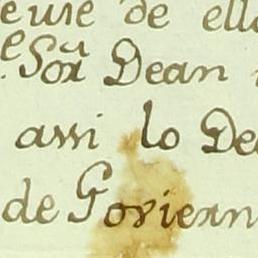 euse de ella
e Sor Dean
assi lo De
de Goviern